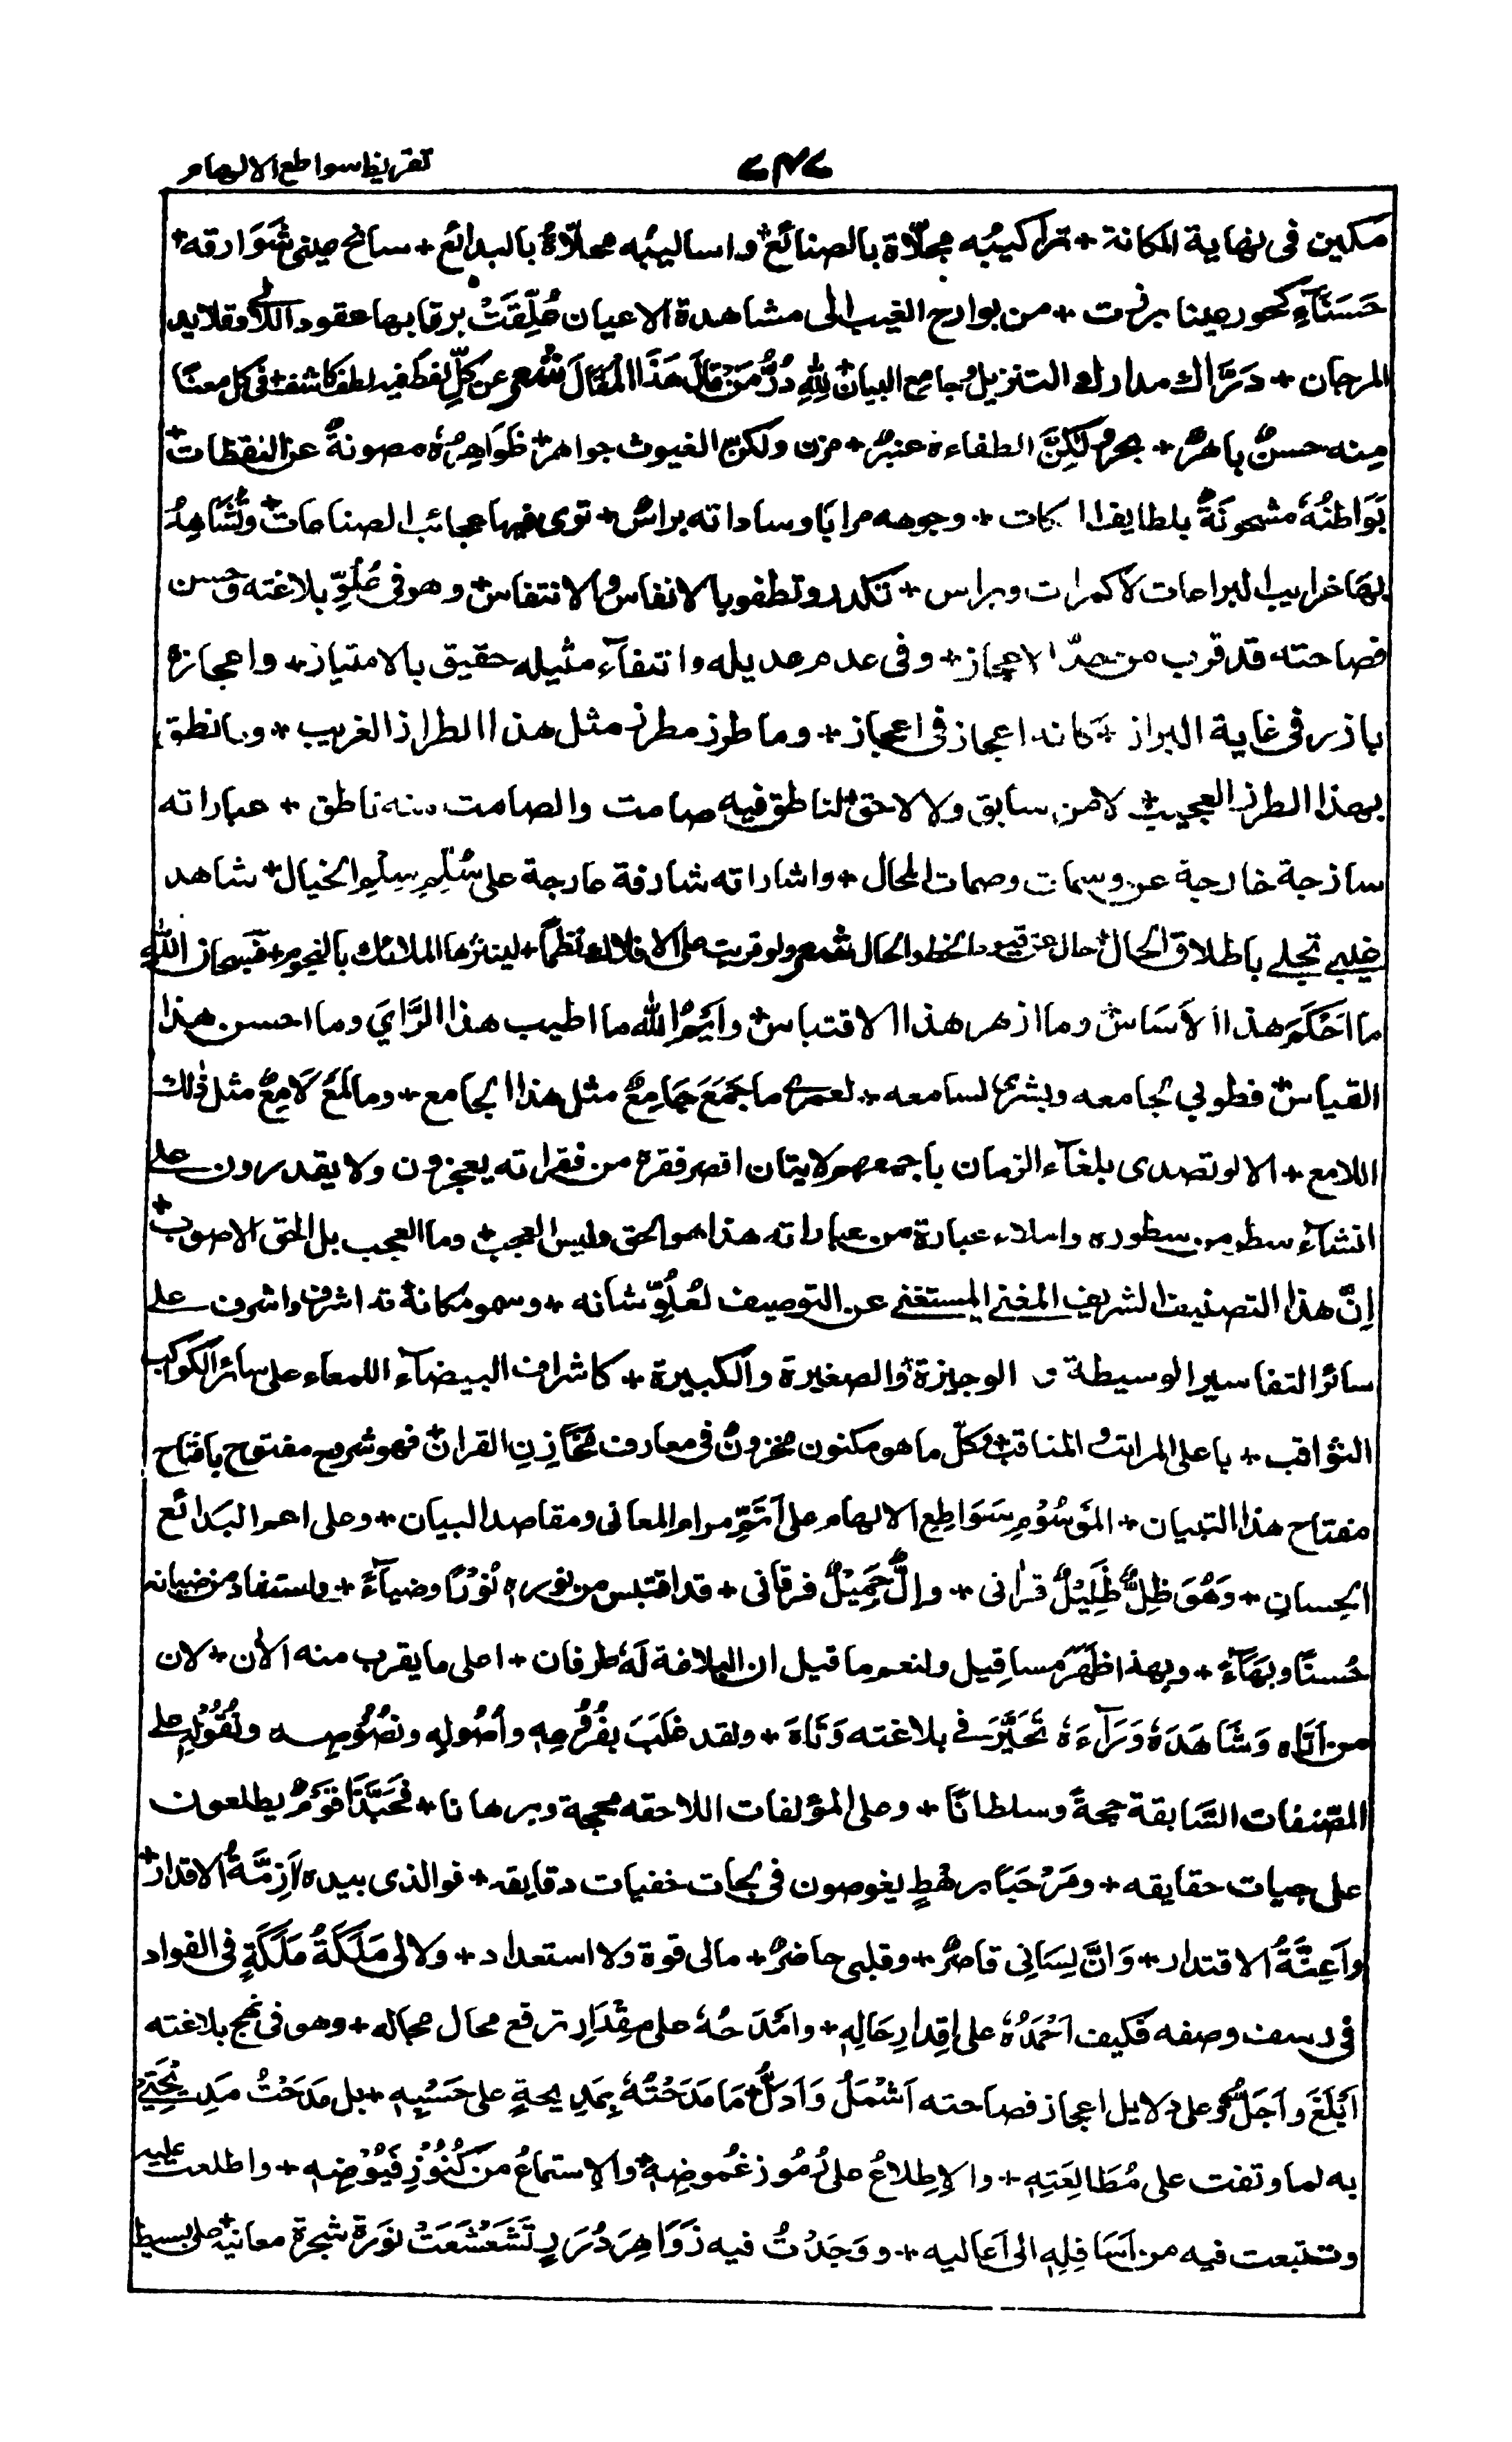 تقريظ سواطع الالهام
٧٤٧
مكين فى نهاية المكانة + تراكيبُه مجلّاة بالصنائع + واساليبُه محلّاةٌ بالبدائع + سانح صينى شَوَارقه +
حَسَنَآءِ كحور عينا برزت + من بوارح الغيب الى مشاهدة الاعيان عُلِّقَتْ برقابها عقود اللآلى وقلايد
المرجان + دَرَّاك مدارك التنزيل وجامع البيان + لِلّٰهِ دُرُّ مَنْ قَالَ هَذَا الْمَقَالَ شعر عن كلِّ لفظ فيه لطف كاشف + فى كل معنًا
مِنه حسنٌ باهرٌ + بحرٌ لٰكِنَّ الطفاءه عنبرٌ + مزن ولكنّ الغيوث جواهر + ظَوَاهِرُهٗ مصونةٌ عن النقظات +
بَوَاطنُهٗ مشحونَةٌ بلطايف ا كات + وجوهه مرايًا وساداته براسٌ + ترى فيها عجائب الصناعات + وتُشَاهِدُ
بها غرايب البراعات لا كمرات وبراس + تكدر وتطفو بالانفاس والانتفاس + وهو فى عُلُوِّ بلاغته وحسن
فصاحته قد قرب من حدّ الاعجاز + وفى عدم عديله وانتفآء مثيله حقيق بالامتياز + واعجازهٗ
بازر فى غاية البراز + كانه اعجاز فى اعجاز + وما طرز مطرز مثل هذا الطراز الغريب + وما نطق
بهذا الطرز العجيب + لا من سابق ولا لاحق + لناطق فيه صامت والصامت منه ناطق + عباراته
ساذجة خارجة عن وسمات وصمات المحال + واشاراته شارفة عارجة على سُلَّمِ سِلمِ الخيال + شاهد
غيبى تجلى باطلاق الحال + حال عن قيود الخط والخال شعر ولو قريت على الافلاك نظمًا + لينثرها الملائك بالنجوم + فسبحان اللّٰه
ما اَحْكَمَ هذا الْاَسَاسَ وما ازهر هذا الاقتباس + وَاَيْمُ اللّٰه ما اطيب هذا الرَّاىَ وما احسن هذا
القياس + فطوبى لجامعه وبشرى لسامعه + لعمرى ما جَمَعَ جَامِعٌ مثل هذا الجامع + وما لَمَعَ لَامِعٌ مثل ذٰلك
اللامع + الا لو تصدى بلغآء الزمان باجمعهم لايتان اقصر فقرة من فقراته يعجزون ولا يقدرون على
انشآء سطر من سطوره واملاء عبارة من عباراته هذا هو الحق وليس العجب + وما العجب بل الحق الاصوب +
اِنَّ هذا التصنيف الشريف المغنى المستغنى عن التوصيف لعُلُوِّ شانه + وسمو مكانة قد اشرف واشرف على
سائر التفاسير الوسيطة و الوجيزة والصغيرة والكبيرة + كاشراف البيضآء اللمعاء على سائر الكواكب
الثواقب + باعلى المراتب والمناقب + فكلّ ما هو مكنون مخزونٌ فى معارف مَخَازِنِ القران + فهو شريح مفتوح بافتاح
مفتاح هذا التبيان + المَوسُوْمِ بسَوَاطِعِ الالهام على اَتَمِّ مرام المعانى ومقاصد البيان + وعلى اعم البَدَائع
الحِسان + وَهُوَ ظِلٌّ ظَلِيْلٌ قرانى + وإلٌّ جَمِيْلٌ فرقانى + قد اقتبس من نوره نُوْرًا وضيآءً + واستفاد من ضيائه
حُسنًا وبهَآءً + وبهذا ظَهَرَ مسا قيل ولنعم ما قيل ان البلاغة لَهٗ طرفان + اعلى ما يقرب منه الاٰن + لان
من اَتَاه وَشَاهَدَهٗ وَرَآءَهٗ تَحَيَّرَ فى بلاغته وَتَاهَ + ولقد غَلَبَ بفُرُعِهٖ وأُصُولِهٖ ونُصُوصِه ونُقُوْلِهٖ على
المصّنفات السَّابقة حجةً وسلطانًا + وعلى المؤلفات اللاحقه محجة وبرهانا + فَحَبَّذَا قَوْمٌ يطلعون
على جيات حقايقه + ومَرْحَبًا برهْطٍ يغوصون فى لجات خفيات دقايقه + فو الذى بيده اَزِمَّةُ الاقدار +
واَعِنَّةُ الاقتدار + وَانَّ لِسَانِى قاصرٌ + وقلبى حاضرٌ + مالى قوة ولا استعداد + ولا لى مَلَكَةُ مَلَكَةٍ فى الفواد
فى رسف وصفه فكيف اَحْمَدُهٗ على اِقِدارِ حَالِهٖ + وامْدَحُهٗ على مِقْدَارِ ترفع محال مجاله + وهو فى نهج بلاغته
اَبْلَغَ واَجَلُّ + وعلى دلايل اعجاز فصاحته اَشْمَلُ وَاَدَلُّ + مَا مَدَحْتُهٗ بِمَدِيحةٍ على حَسْبِهٖ + بل مَدَحْتُ مَدِيْحَتِىْ
به لما وقفت على مُطَالِعَتِهٖ + والاِطِلاعُ على رُمُوز غُموضِهٖ + والاستماعُ من كُنُوْزِ فُيُوْضِهٖ + واطلعت عليه
وتتبعت فيه من اَسَافِلِهٖ الى اَعَاليه + ووَجَدْتُ فيه زَوَاهِرَ دُرَرٍ تَشَعْشَعَتْ نوَرَةُ شجرة معانيه + على بسيط